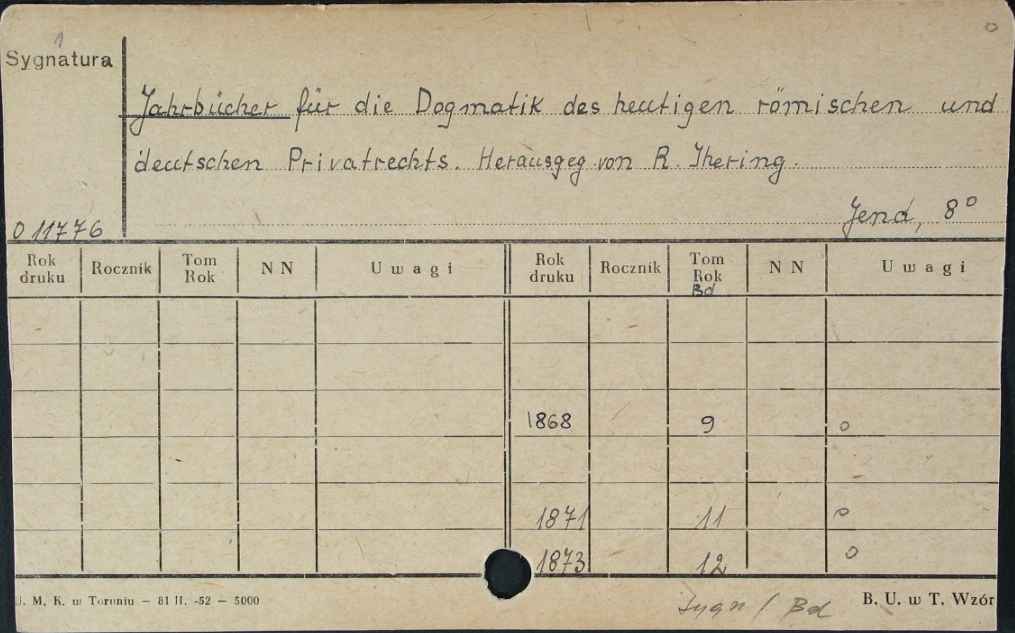 1
Sygnatura
Jahrbücher für die Dogmatik des heutigen römischen und
deutschen Privatrechts. Herausgeg. von R. Jhering.
Jena, 8°
O 11776
Rok druku Rocznik Tom Rok N N Uwagi Rok druku Rocznik Tom Rok Bd N N Uwagi
1868 9 o
1871 11 o
1873 12 o
U. M. K. w Toruniu — 81 II. -52 — 5000
Sygn / Bd
B. U. w T. Wzór